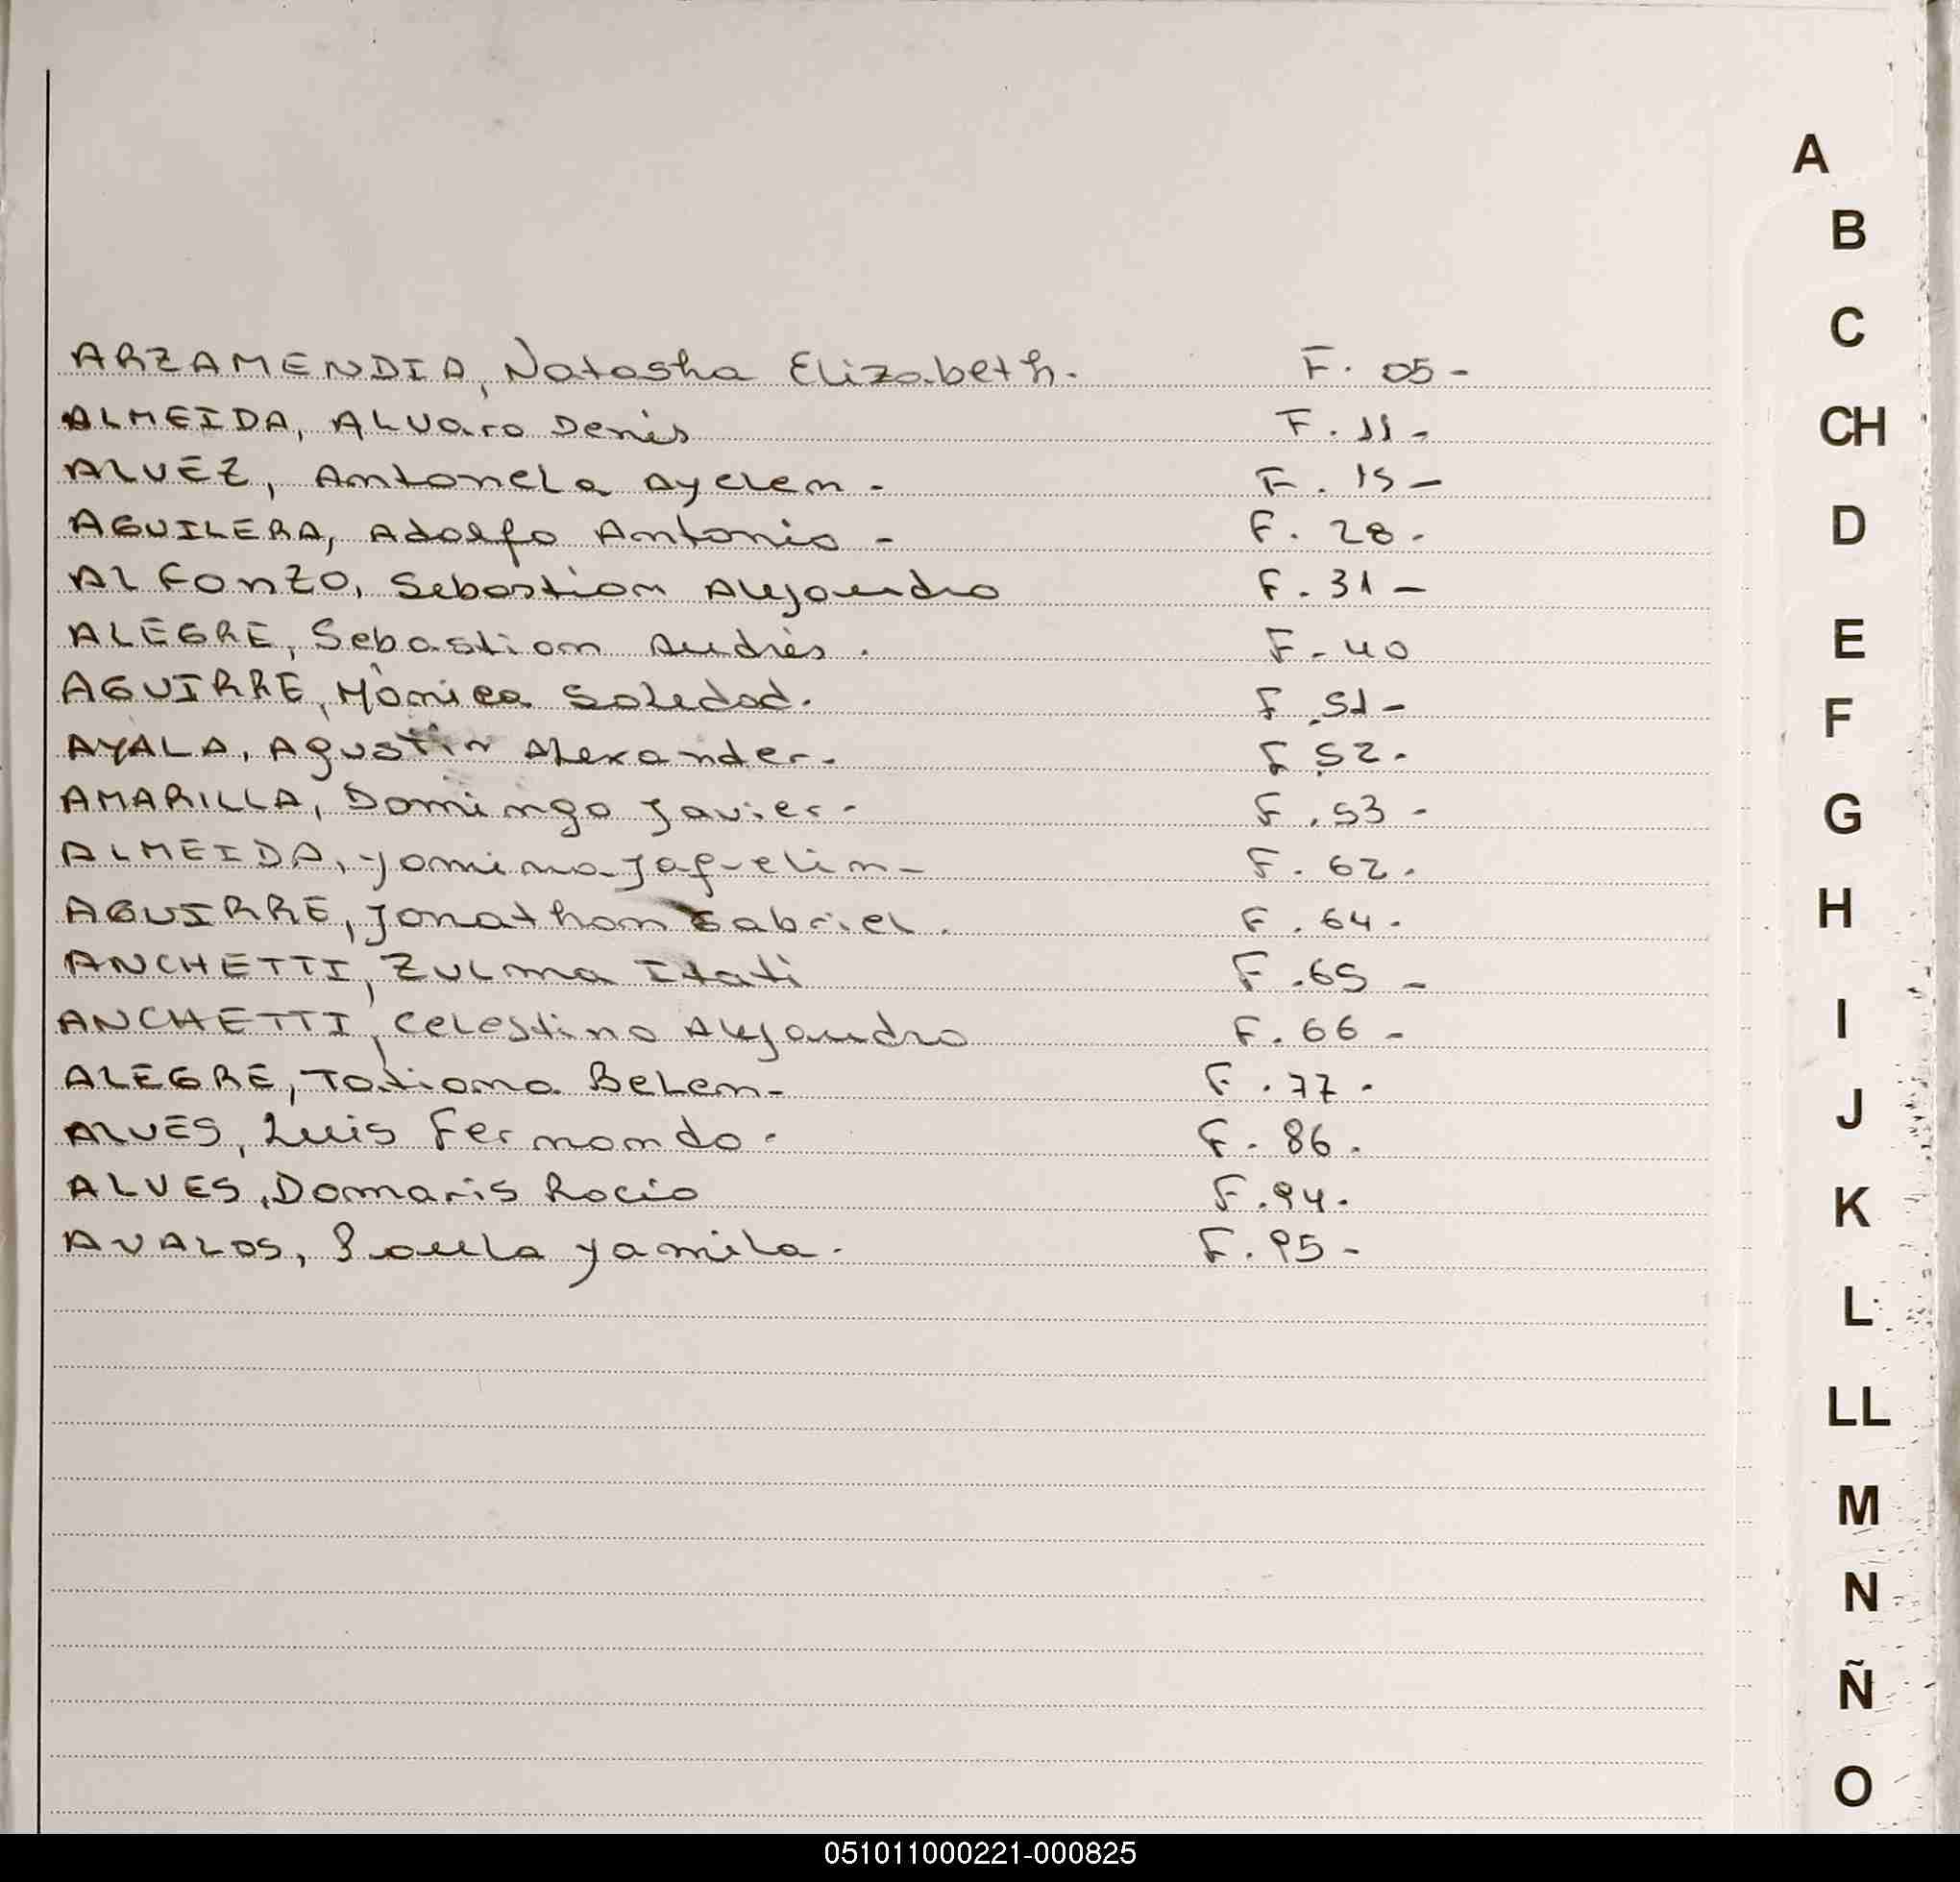 ARZAMENDIA, Natasha Elizabeth. F. 05-
ALMEIDA, ALVaro Denis F. 11-
ALVEZ, Antonela Ayelen. F. 15-
AGUILERA, Adolfo Antonio - F. 28.
ALFONZO, Sebastian Alejandro F. 31-
ALEGRE, Sebastian Andrés. F-40
AGUIRRE, Mónica Soledad. F.51-
AYALA, Agustin Alexander. F.52.
AMARILLA, Domingo Javier- F.53-
ALMEIDA, Yamina Jaquelin- F. 62.
AGUIRRE, Jonathan Gabriel. F. 64.
ANCHETTI, Zulma Itati F.65-
ANCHETTI, Celestino Alejandro F. 66-
ALEGRE, Tatiana Belen- F. 77.
ALVES, Luis Fernando. F. 86.
ALVES, Damaris Rocio F.94.
AVALOS, Paula Yamila. F. 95-
A
B
C
CH
D
E
F
G
H
I
J
K
L
LL
M
N
Ñ
O
051011000221-000825